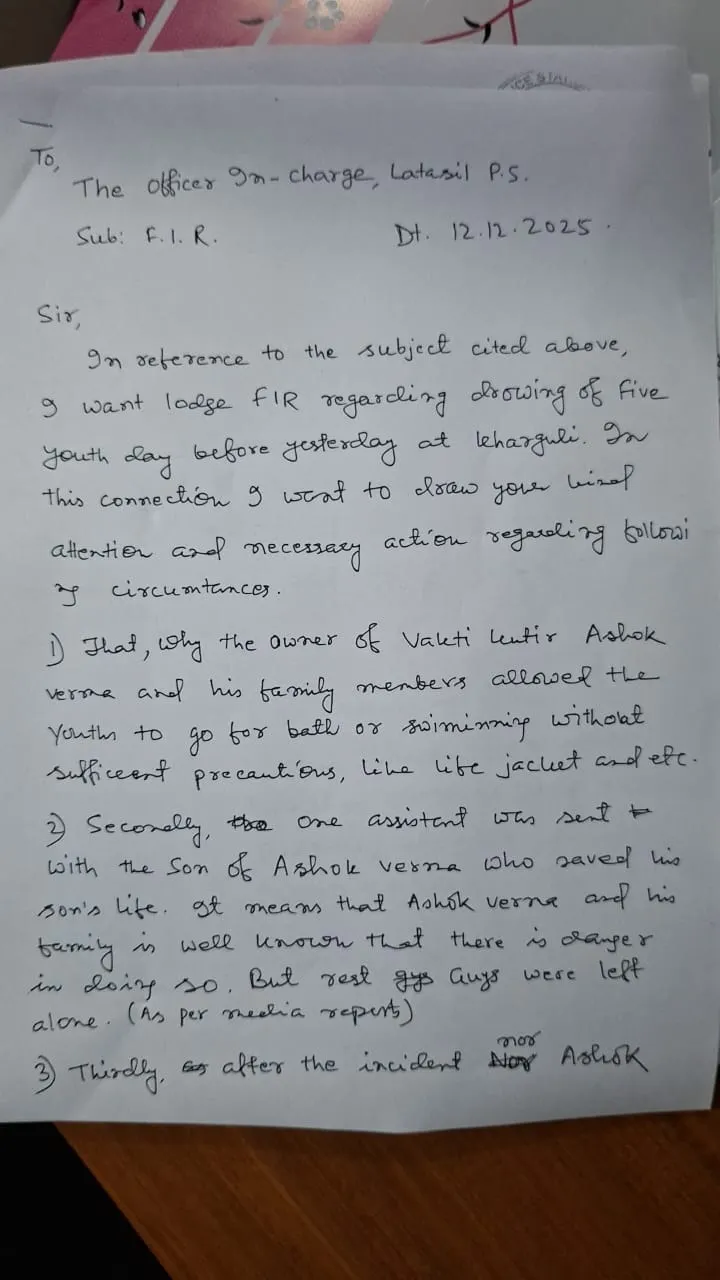 To,
The Officer In-Charge, Latasil P.S.
Sub: F.I.R. Dt. 12.12.2025.
Sir,
In reference to the subject cited above,
I want lodge FIR regarding drowing of five
youth day before yesterday at Kharguli. In
this connection I want to draw your kind
attention and necessary action regarding followi
ng circumtances.
1) That, why the owner of Vakti Kutir Ashok
verma and his family members allowed the
Youths to go for bath or swiminning without
sufficeent precautions, like life jacket and etc.
2) Secondly, one assistant was sent
with the son of Ashok verma who saved his
son's life. It means that Ashok verma and his
family is well known that there is danger
in doing so. But rest Guys were left
alone. (As per media reports)
3) Thirdly, after the incident nor Ashok